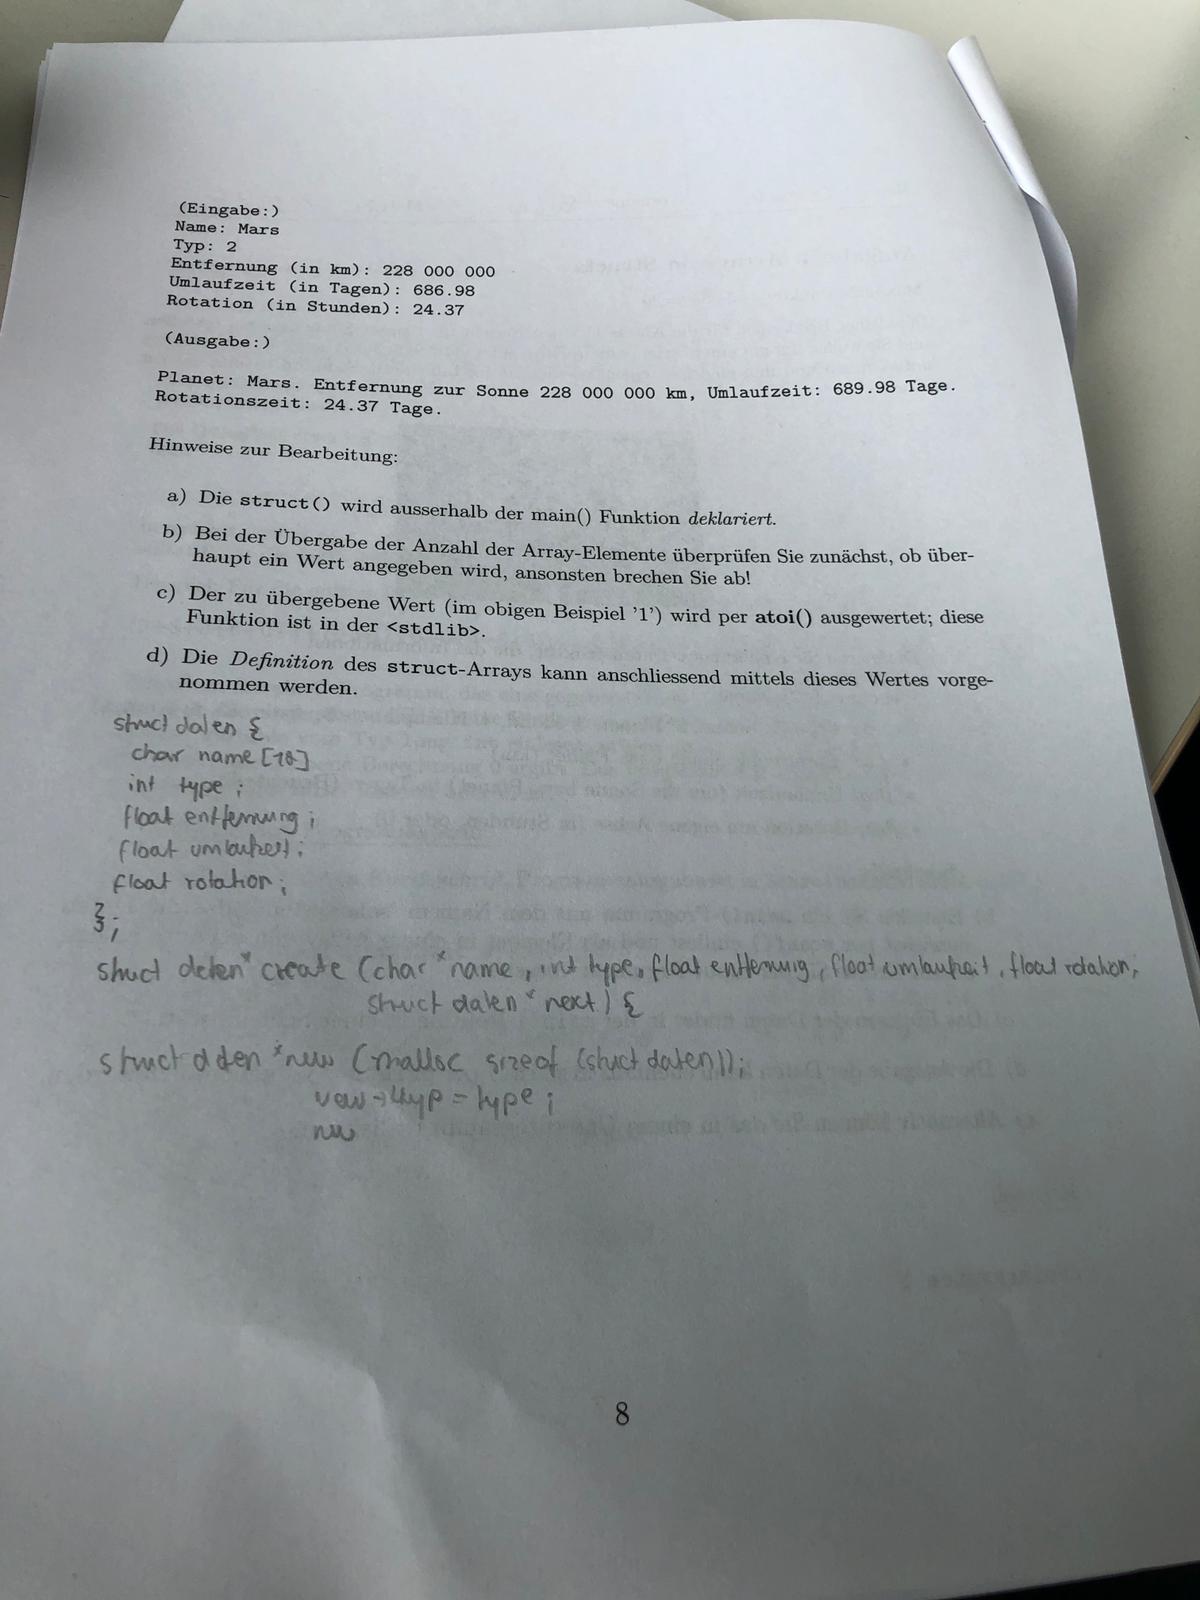 (Eingabe:)
Name: Mars
Typ: 2
Entfernung (in km): 228 000 000
Umlaufzeit (in Tagen): 686.98
Rotation (in Stunden): 24.37
(Ausgabe:)
Planet: Mars. Entfernung zur Sonne 228 000 000 km, Umlaufzeit: 689.98 Tage.
Rotationszeit: 24.37 Tage.
Hinweise zur Bearbeitung:
a) Die struct() wird ausserhalb der main() Funktion deklariert.
b) Bei der Übergabe der Anzahl der Array-Elemente überprüfen Sie zunächst, ob über-
haupt ein Wert angegeben wird, ansonsten brechen Sie ab!
c) Der zu übergebene Wert (im obigen Beispiel '1') wird per atoi() ausgewertet; diese
Funktion ist in der <stdlib>.
d) Die Definition des struct-Arrays kann anschliessend mittels dieses Wertes vorge-
nommen werden.
struct daten {
char name [10]
int type ;
float entfernung ;
float umlaufzeit ;
float rotation ;
};
struct daten* create (char *name, int type, float entfernung, float umlaufzeit, float rotation,
struct daten * next) {
struct daten *new (malloc sizeof (struct daten));
new → typ = type ;